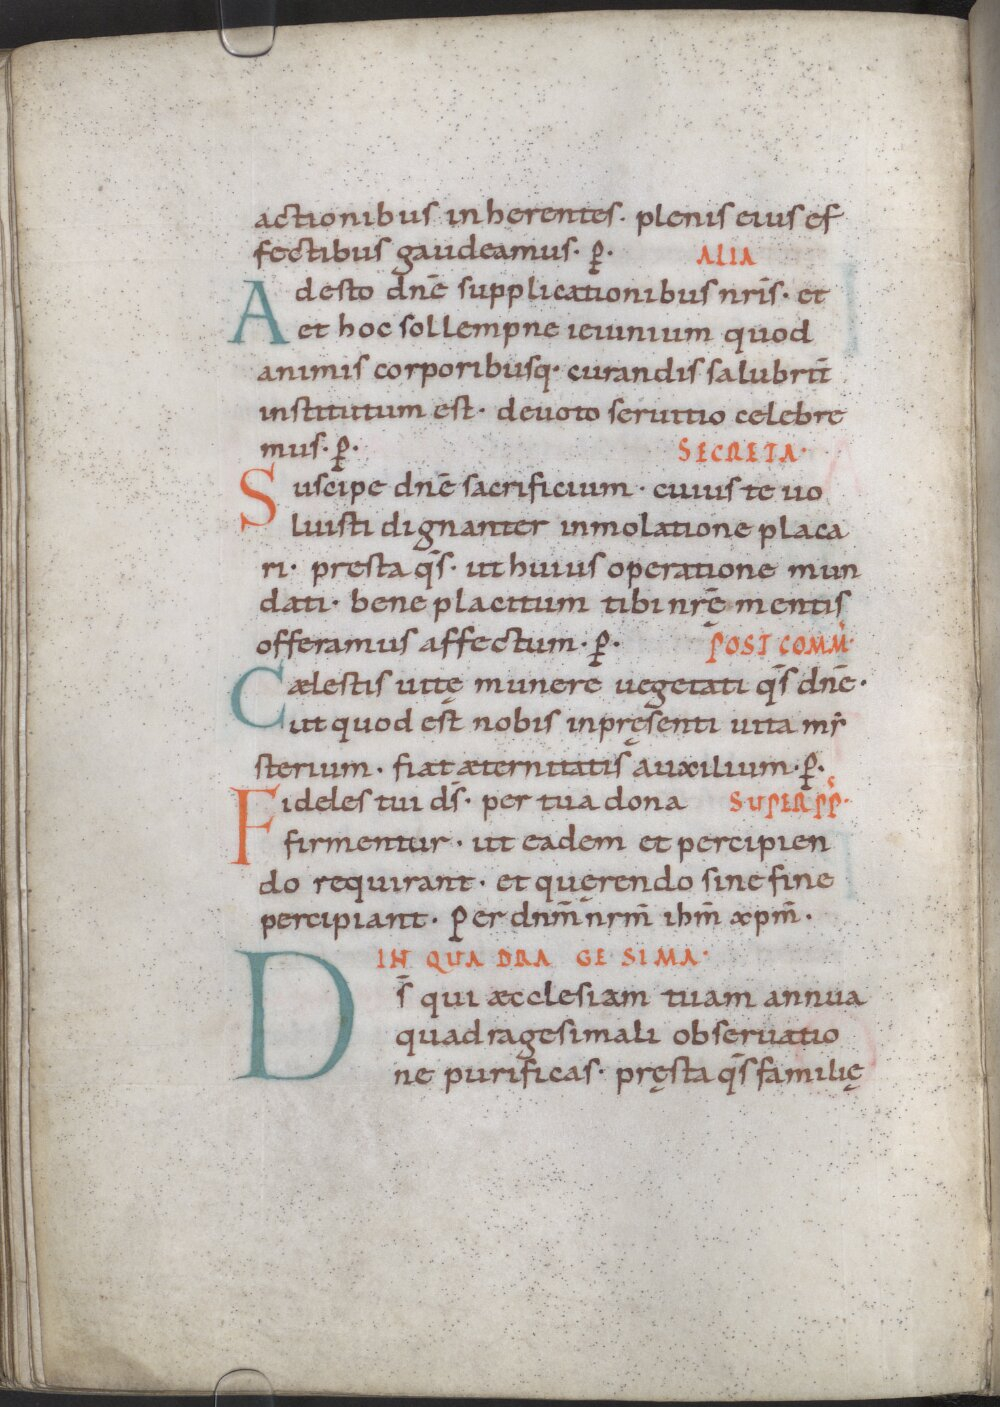 actionibus inherentes· plenis eius ef
fectibus gaudeamus· p̲· ALIA
Adesto dnē supplicationibus nrīs· et
et hoc sollempne ieiunium quod
animis corporibusq· curandis salubrit̄
institutum est· deuoto seruitio celebre
mus· p̲· SECRETA·
Suscipe dnē sacrificium· cuius te uo
luisti dignanter inmolatione placa
ri· presta qs̄· ut huius operatione mun
dati· bene placitum tibi nrę̄ mentis
offeramus affectum· p̲· POST COMM̄·
Cælestis uitę munere uegetati qs̄ dnē·
ut quod est nobis inpręsenti uita mi
sterium· fiat æternitatis auxilium· p̲·
Fideles tui ds̄· per tua dona SUPER PP·
firmentur· ut eadem et percipien
do requirant· et quęrendo sine fine
percipiant· Per dnm̄ nrm̄ ihm̄ xpm̄·
IN QUADRAGESIMA·
Ds̄ qui æcclesiam tuam annua
quadragesimali obseruatio
ne purificas· pręsta qs̄ familię